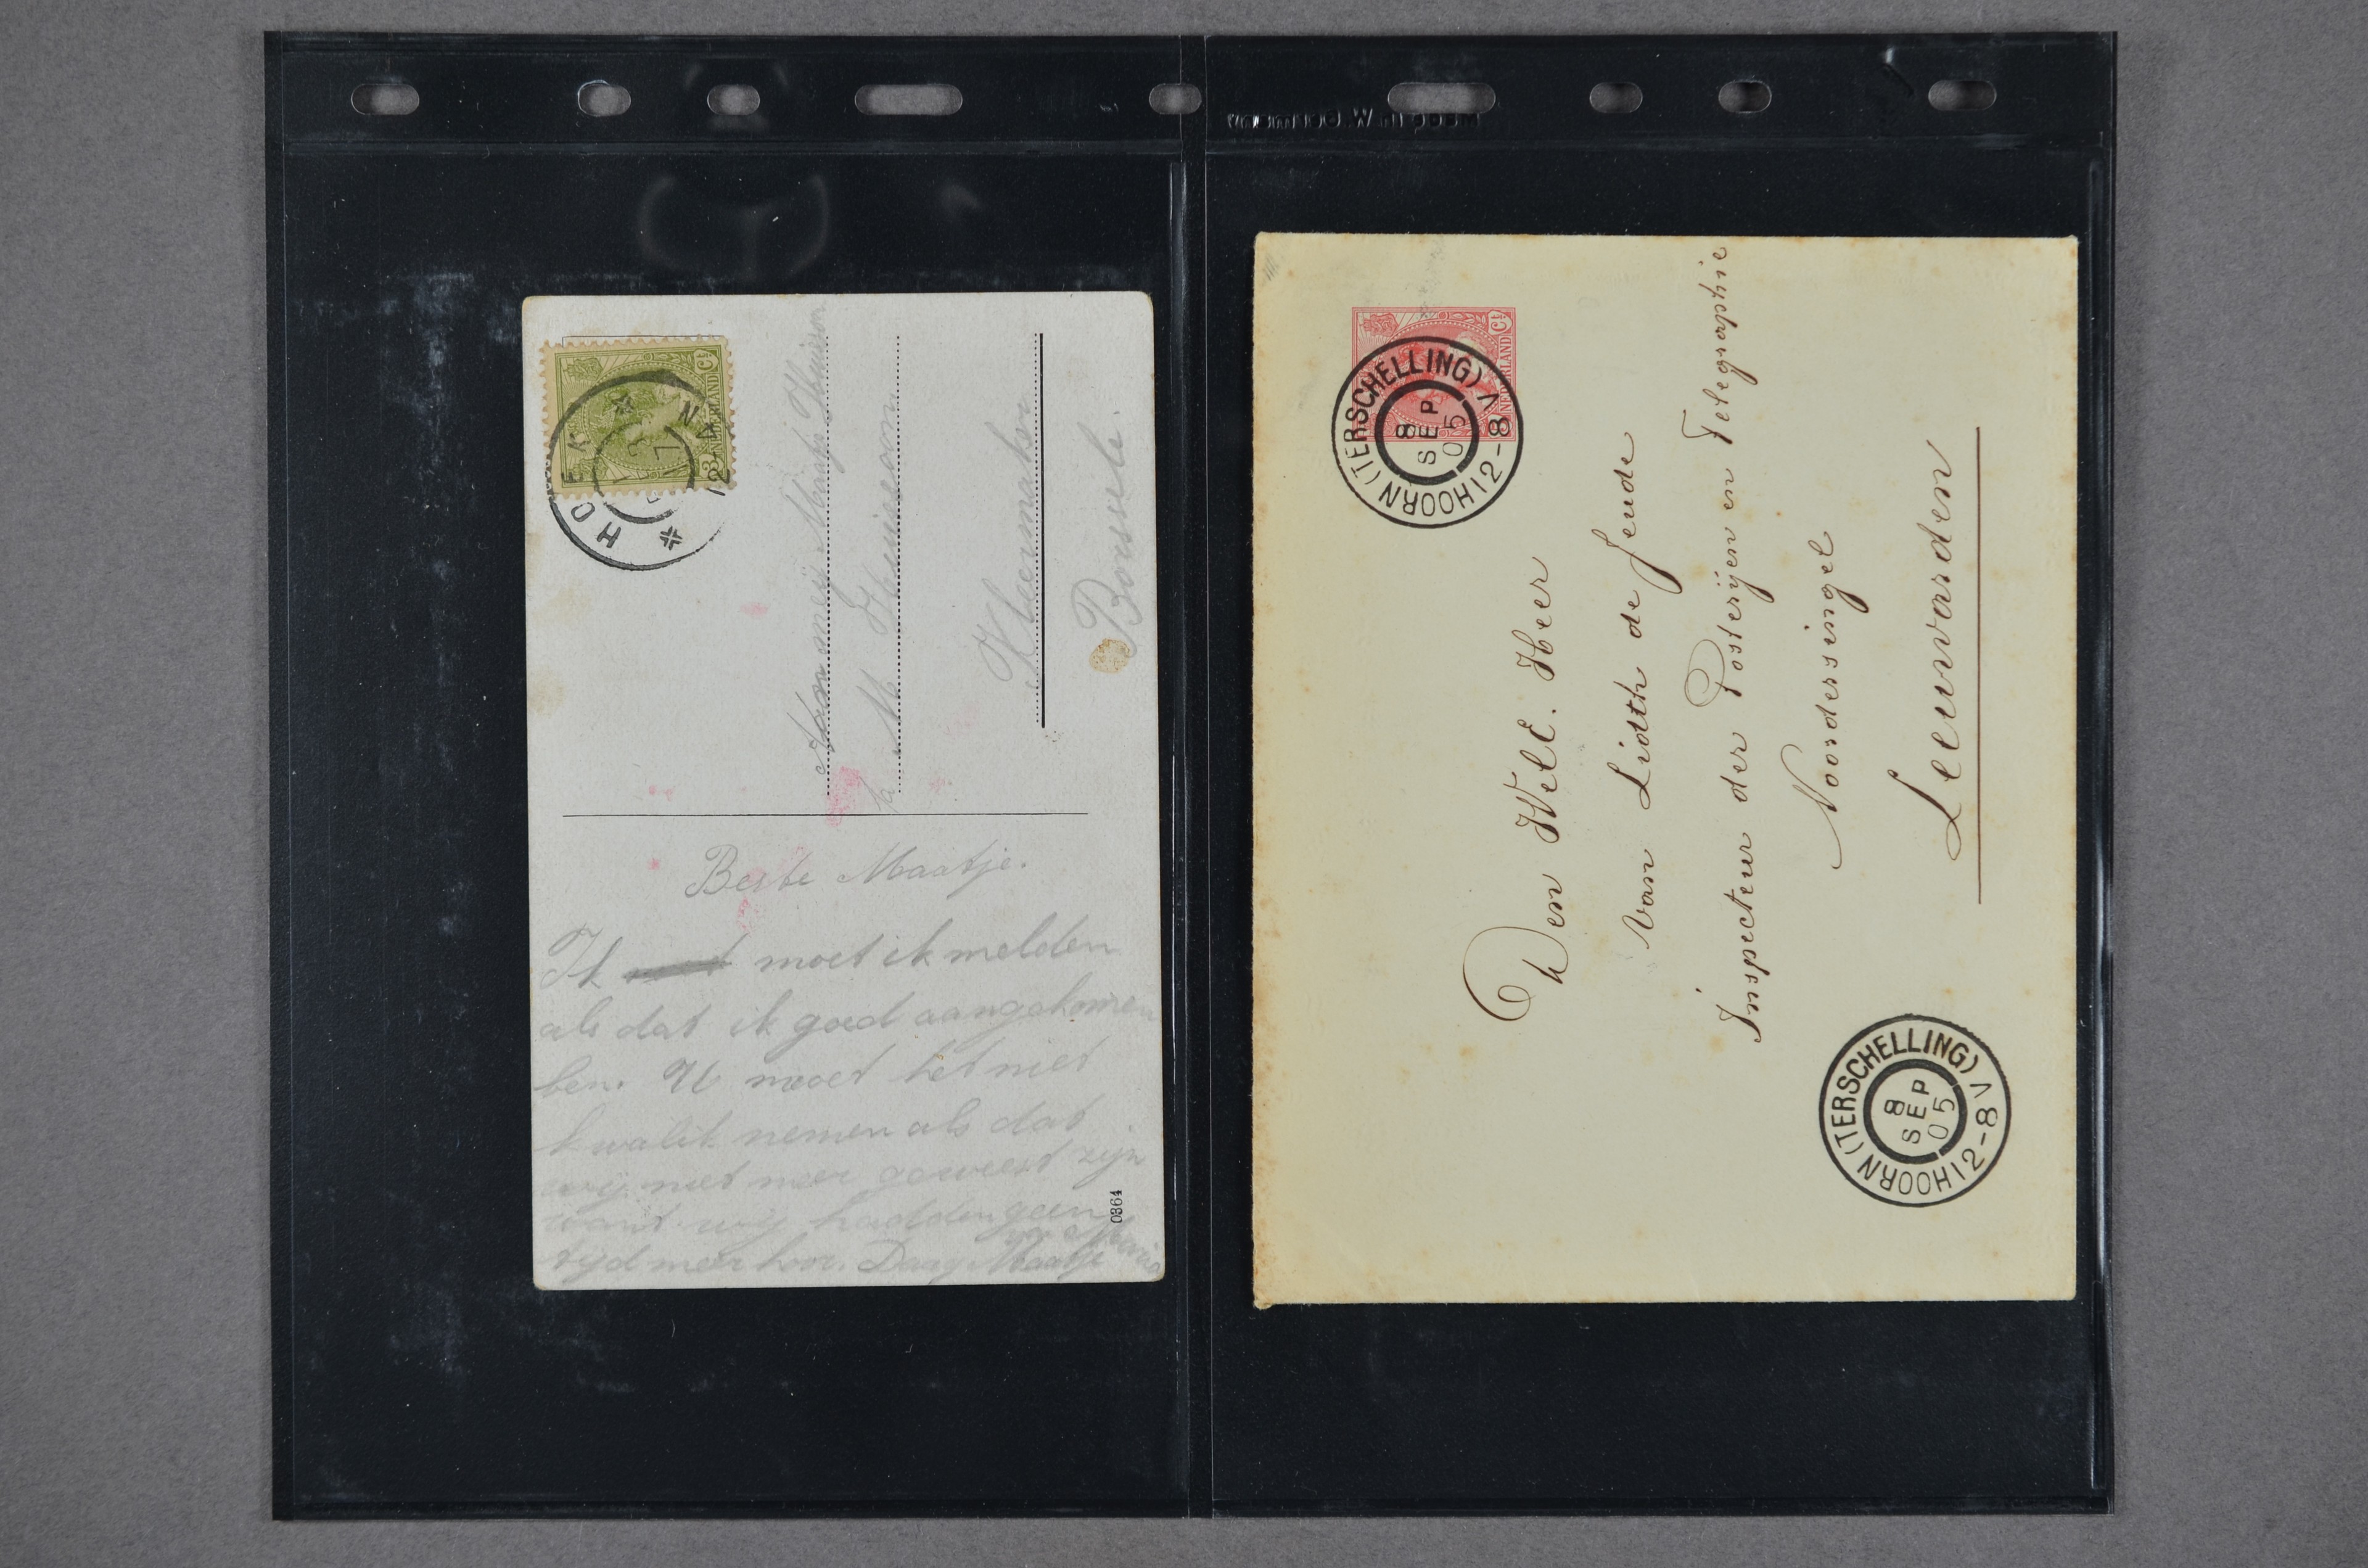 HOEK
3 Ct
NEDERLAND
M Theunissen
Borssele.
Beste Maatje.
Ik moet ik melden
als dat ik goed aangekomen
ben. U moet het niet
kwalik nemen als dat
wij niet meer geweest zijn
want wij hadden geen
tijd meer hoor. Daag Maatje
0364
Made in W. Germany
Ct
NEDERLAND
HOORN (TERSCHELLING)
8
SEP
05
12-8V
Den WelE. Heer
Van Lidth de Jeude
Inspecteur der Posterijen en Telegraphie
Noordersingel
Leeuwarden
HOORN (TERSCHELLING)
8
SEP
05
12-8V